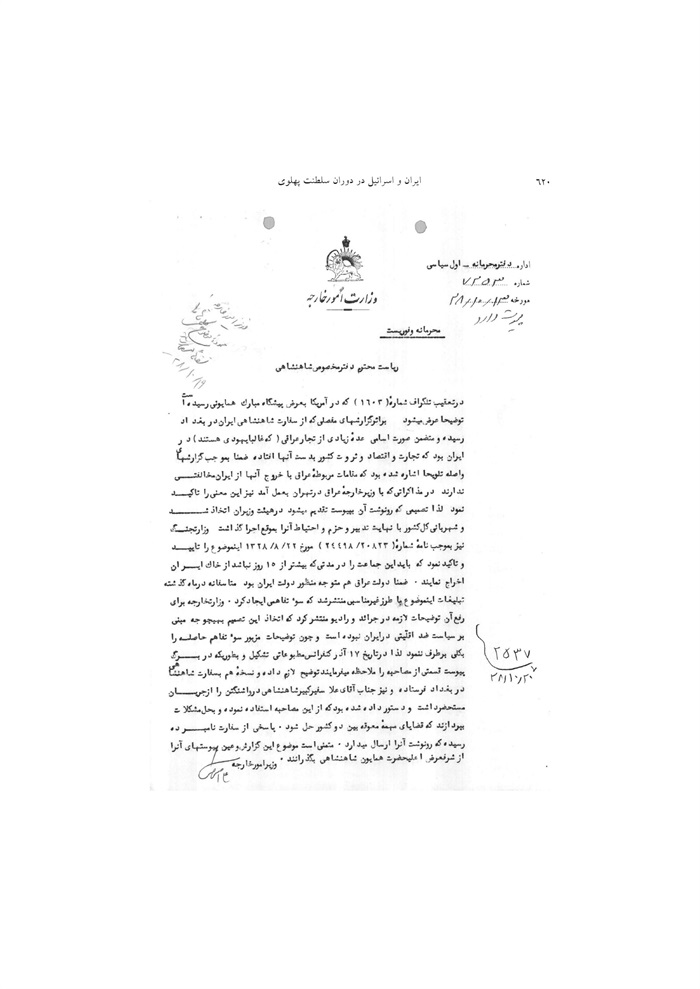 ایران و اسرائیل در دوران سلطنت پهلوی
٦٢٠
اداره دفترمحرمانه - اول سیاسی
شماره ٧٣٥٣
مورخه ٢٨/١٠/١٣
پیوست دارد
وزارت امور خارجه
محرمانه وفوریست
ریاست محترم دفترمخصوص شاهنشاهی
درتعقیب تلگراف شماره (١٦٠٣) که در آمریکا بعرض پیشگاه مبارک همایونی رسیده است
توضیحا عرض میشود براثرگزارشهای مفصلی که از سفارت شاهنشاهی ایران در بغداد
رسیده و متضمن صورت اسامی عده زیادی از تجار عراقی (که غالبا یهودی هستند) در
ایران بود که تجارت و اقتصاد و ثروت کشور بدست آنها افتاده ضمنا بموجب گزارشهای
واصله تلویحا اشاره شده بود که مقامات مربوطه عراق با خروج آنها از ایران مخالفتی
ندارند در مذاکراتی که با وزیرخارجه عراق درتهران بعمل آمد نیز این معنی را تاکید
نمود لذا تصمیمی که رونوشت آن بپیوست تقدیم میشود درهیئت وزیران اتخاذ شد
و شهربانی کل کشور با نهایت تدبیر و حزم و احتیاط آنرا بموقع اجرا گذاشت وزارتجنگ
نیز بموجب نامه شماره (٢٤٤٩٨/٢٠٨٢٣) مورخ ١٣٢٨/٨/٢٢ اینموضوع را تایید
و تاکید نمود که باید این جماعت را درمدتی که بیشتر از ١٥ روز نباشد از خاک ایران
اخراج نمایند ٠ ضمنا دولت عراق هم متوجه منظور دولت ایران بود متاسفانه درماه گذشته
تبلیغات اینموضوع با طرز غیرمناسبی منتشرشد که سوء تفاهمی ایجاد کرد ٠ وزارتخارجه برای
رفع آن توضیحات لازمه در جرائد و رادیو منتشر کرد که اتخاذ این تصمیم بهیچوجه مبنی
بر سیاست ضد اقلیتی درایران نبوده است و چون توضیحات مزبور سوء تفاهم حاصله را
بکلی برطرف ننمود لذا درتاریخ ١٧ آذر کنفرانس مطبوعاتی تشکیل و بطوریکه در برگ
پیوست قسمتی از مصاحبه را ملاحظه میفرمایند توضیح لازم داده و نسخه هم بسفارت شاهنشاهی
در بغداد فرستاده و نیز جناب آقای علا سفیرکبیرشاهنشاهی درواشنگتن را ازجریان
مستحضرداشت و دستور داده شده بود که از این مصاحبه استفاده نموده و بحل مشکلات
بپردازند که قضایای مهمه معوقه بین دو کشور حل شود ٠ پاسخی از سفارت نامبرده
رسیده که رونوشت آنرا ارسال میدارد ٠ متمنی است موضوع این گزارش وعین پیوستهای آنرا
از شرفعرض اعلیحضرت همایون شاهنشاهی بگذرانند ٠
وزیرامورخارجه
٢٥٣٧
٢٨/١٠/٢٠